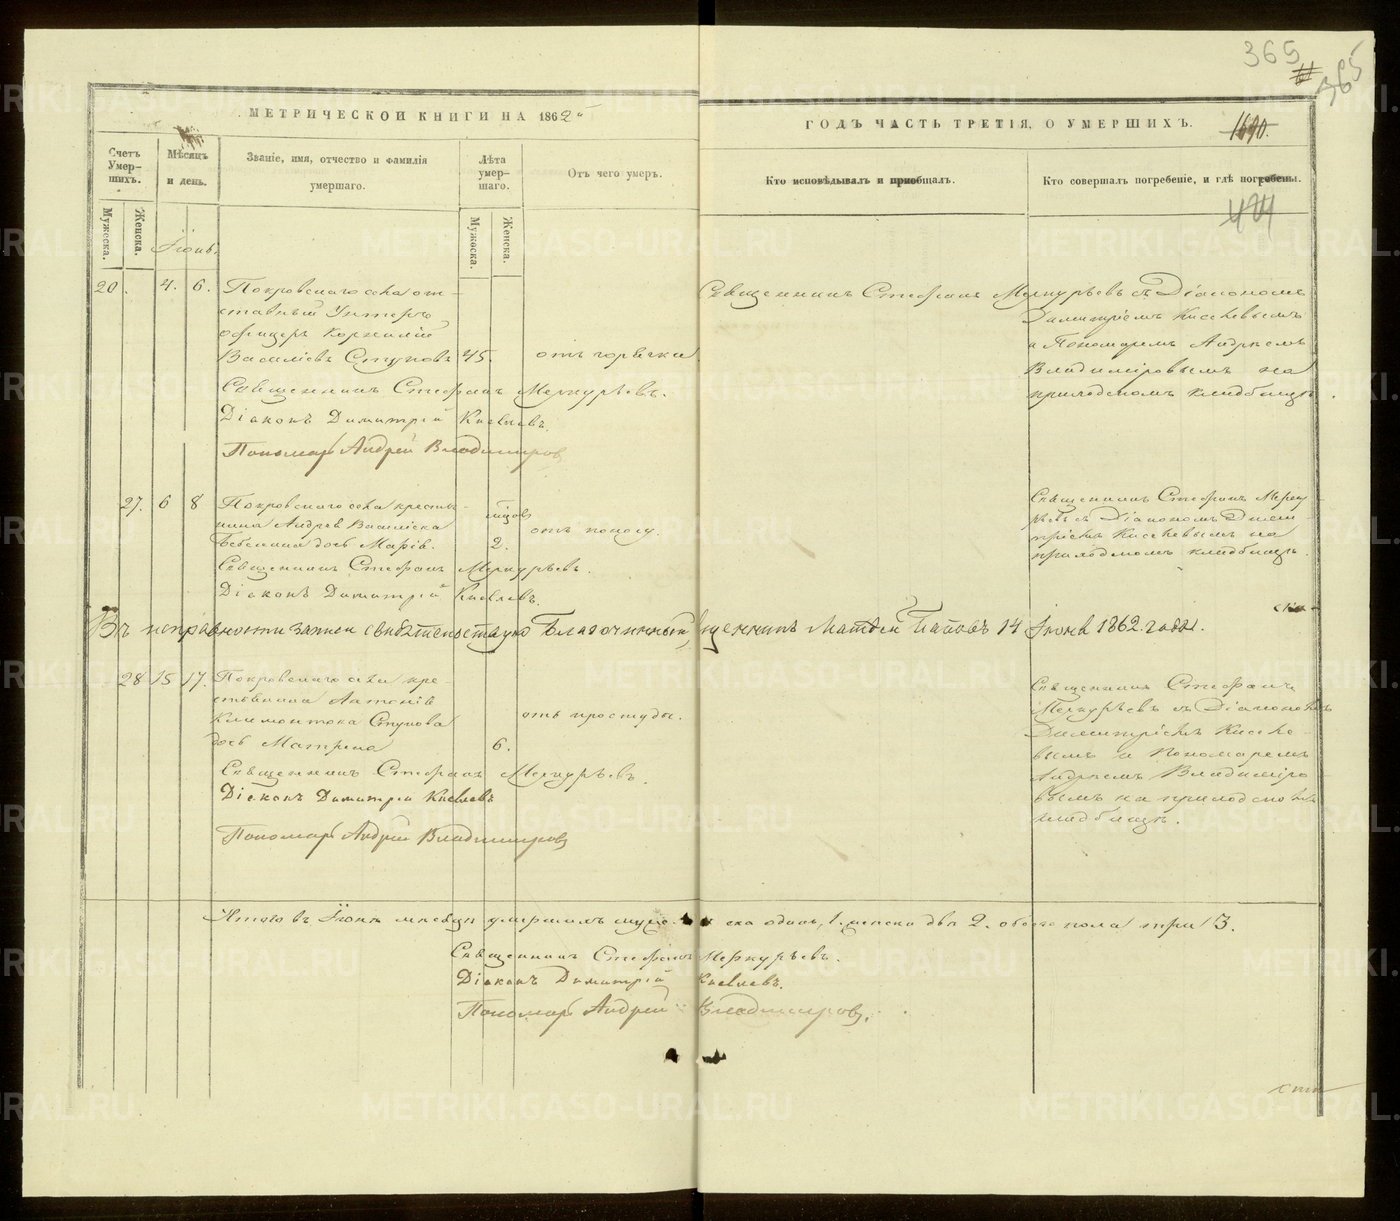 365
365
МЕТРИЧЕСКОЙ КНИГИ НА 1862
ГОДЪ ЧАСТЬ ТРЕТІЯ, О УМЕРШИХЪ.
1690.
Счетъ Умер-шихъ.
Мѣсяцъ и день.
Званіе, имя, отчество и фамилія умершаго.
Лѣта умер-шаго.
Отъ чего умеръ.
Кто исповѣдывалъ и пріобщалъ.
Кто совершалъ погребеніе, и гдѣ погребены.
Мужеска.
Женска.
Мужеска.
Женска.
Іюнь.
20. 4. 6.
Покровскаго села от-
ставный Унтеръ
офицеръ Корнилій
Василіевъ Стуковъ 45. отъ горячки
Священникъ Стефанъ Меркурьевъ.
Діаконъ Димитрій Киселевъ.
Пономарь Андрей Владимировъ
Священникъ Стефанъ Меркурьевъ съ Діакономъ
Димитріемъ Киселевымъ
и Пономаремъ Андреемъ
Владиміровымъ на
приходскомъ кладбищѣ.
27. 6 8
Покровскаго села кресть-
янина Андрея Василіева
дочь Марія. 2. отъ поносу.
Священникъ Стефанъ Меркурьевъ.
Діаконъ Димитрій Киселевъ.
Священникъ Стефанъ Мерку-
рьевъ съ Діакономъ Димит-
ріемъ Киселевымъ на
приходскомъ кладбищѣ.
Въ исправности записи свидѣтельствую Благочинный Священникъ Матѳей Поповъ 14 Іюня 1862 года.
28 15 17.
Покровскаго села кре-
стьянина Антонія
Климонтова Стукова
дочь Матрена 6. отъ простуды.
Священникъ Стефанъ Меркурьевъ.
Діаконъ Димитрій Киселевъ
Пономарь Андрей Владимировъ
Священникъ Стефанъ
Меркурьевъ съ Діакономъ
Димитріемъ Киселе-
вымъ и Пономаремъ
Андреемъ Владиміро
вымъ на приходскомъ
кладбищѣ.
Итого въ Іюнѣ мѣсяцѣ умершихъ мужеска одинъ, 1. женска двѣ 2. обоего пола три 3.
Священникъ Стефанъ Меркурьевъ.
Діаконъ Димитрій Киселевъ.
Пономарь Андрей Владимировъ.
METRIKI.GASO-URAL.RU